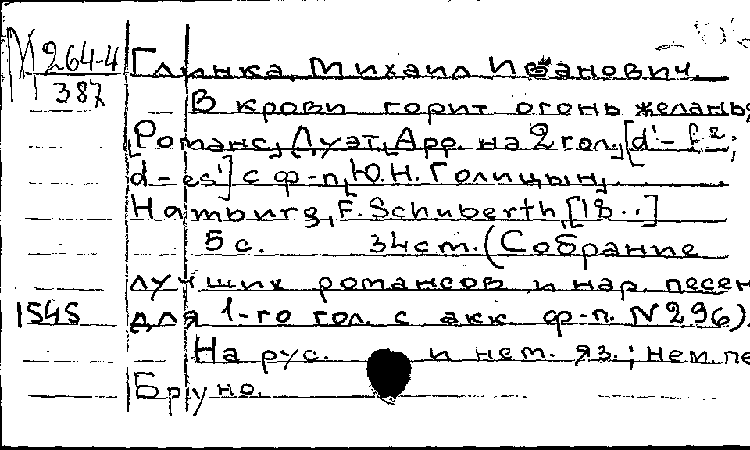 М 264-4
387
Глинка, Михаил Иванович
В крови горит огонь желанья
[Романс], Дуэт, [Арр. на 2 гол.] [d'-f²;
d-es'] с ф-п, Ю.Н. Голицын,
Hamburg, F. Schuberth, [18..]
5 с. 34 ст. (Собрание
лучших романсов и нар. песен
1545 для 1-го гол. с акк ф-п. N 296).
На рус. и нем. яз.; нем.
Бруно.